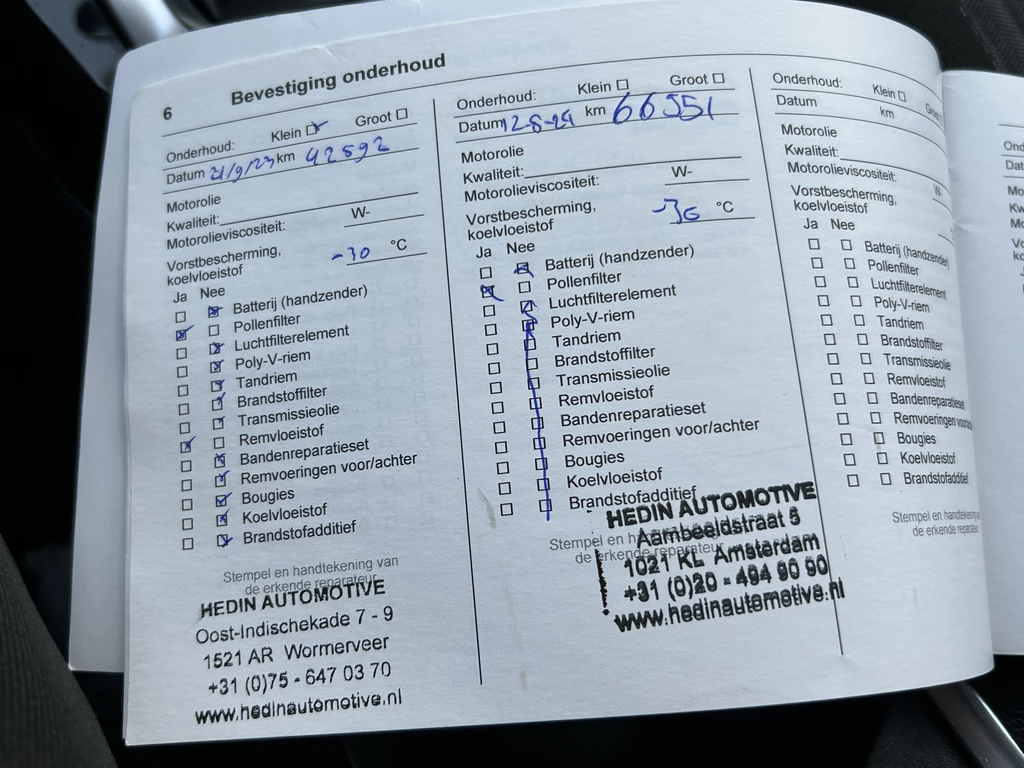 6 Bevestiging onderhoud
Onderhoud: Klein Groot
Datum 21/9/23 km 42592
Motorolie
Kwaliteit:
Motorolieviscositeit: W-
Vorstbescherming,
koelvloeistof -30 °C
Ja Nee
Batterij (handzender)
Pollenfilter
Luchtfilterelement
Poly-V-riem
Tandriem
Brandstoffilter
Transmissieolie
Remvloeistof
Bandenreparatieset
Remvoeringen voor/achter
Bougies
Koelvloeistof
Brandstofadditief
Stempel en handtekening van
de erkende reparateur
HEDIN AUTOMOTIVE
Oost-Indischekade 7 - 9
1521 AR Wormerveer
+31 (0)75 - 647 03 70
www.hedinautomotive.nl
Onderhoud: Klein Groot
Datum 12-8-24 km 66551
Motorolie
Kwaliteit:
Motorolieviscositeit: W-
Vorstbescherming,
koelvloeistof °C
Ja Nee
Batterij (handzender)
Pollenfilter
Luchtfilterelement
Poly-V-riem
Tandriem
Brandstoffilter
Transmissieolie
Remvloeistof
Bandenreparatieset
Remvoeringen voor/achter
Bougies
Koelvloeistof
Brandstofadditief
Stempel en
de erkende reparateur
HEDIN AUTOMOTIVE
Aambeeldstraat 5
1021 KL Amsterdam
+31 (0)20 - 494 90 90
www.hedinautomotive.nl
Onderhoud: Klein
Datum km
Motorolie
Kwaliteit:
Motorolieviscositeit: W-
Vorstbescherming,
koelvloeistof
Ja Nee
Batterij (handzender)
Pollenfilter
Luchtfilterelement
Poly-V-riem
Tandriem
Brandstoffilter
Transmissieolie
Remvloeistof
Bandenreparatieset
Remvoeringen
Bougies
Koelvloeistof
Brandstofadditief
Stempel en handtekening
de erkende reparateur